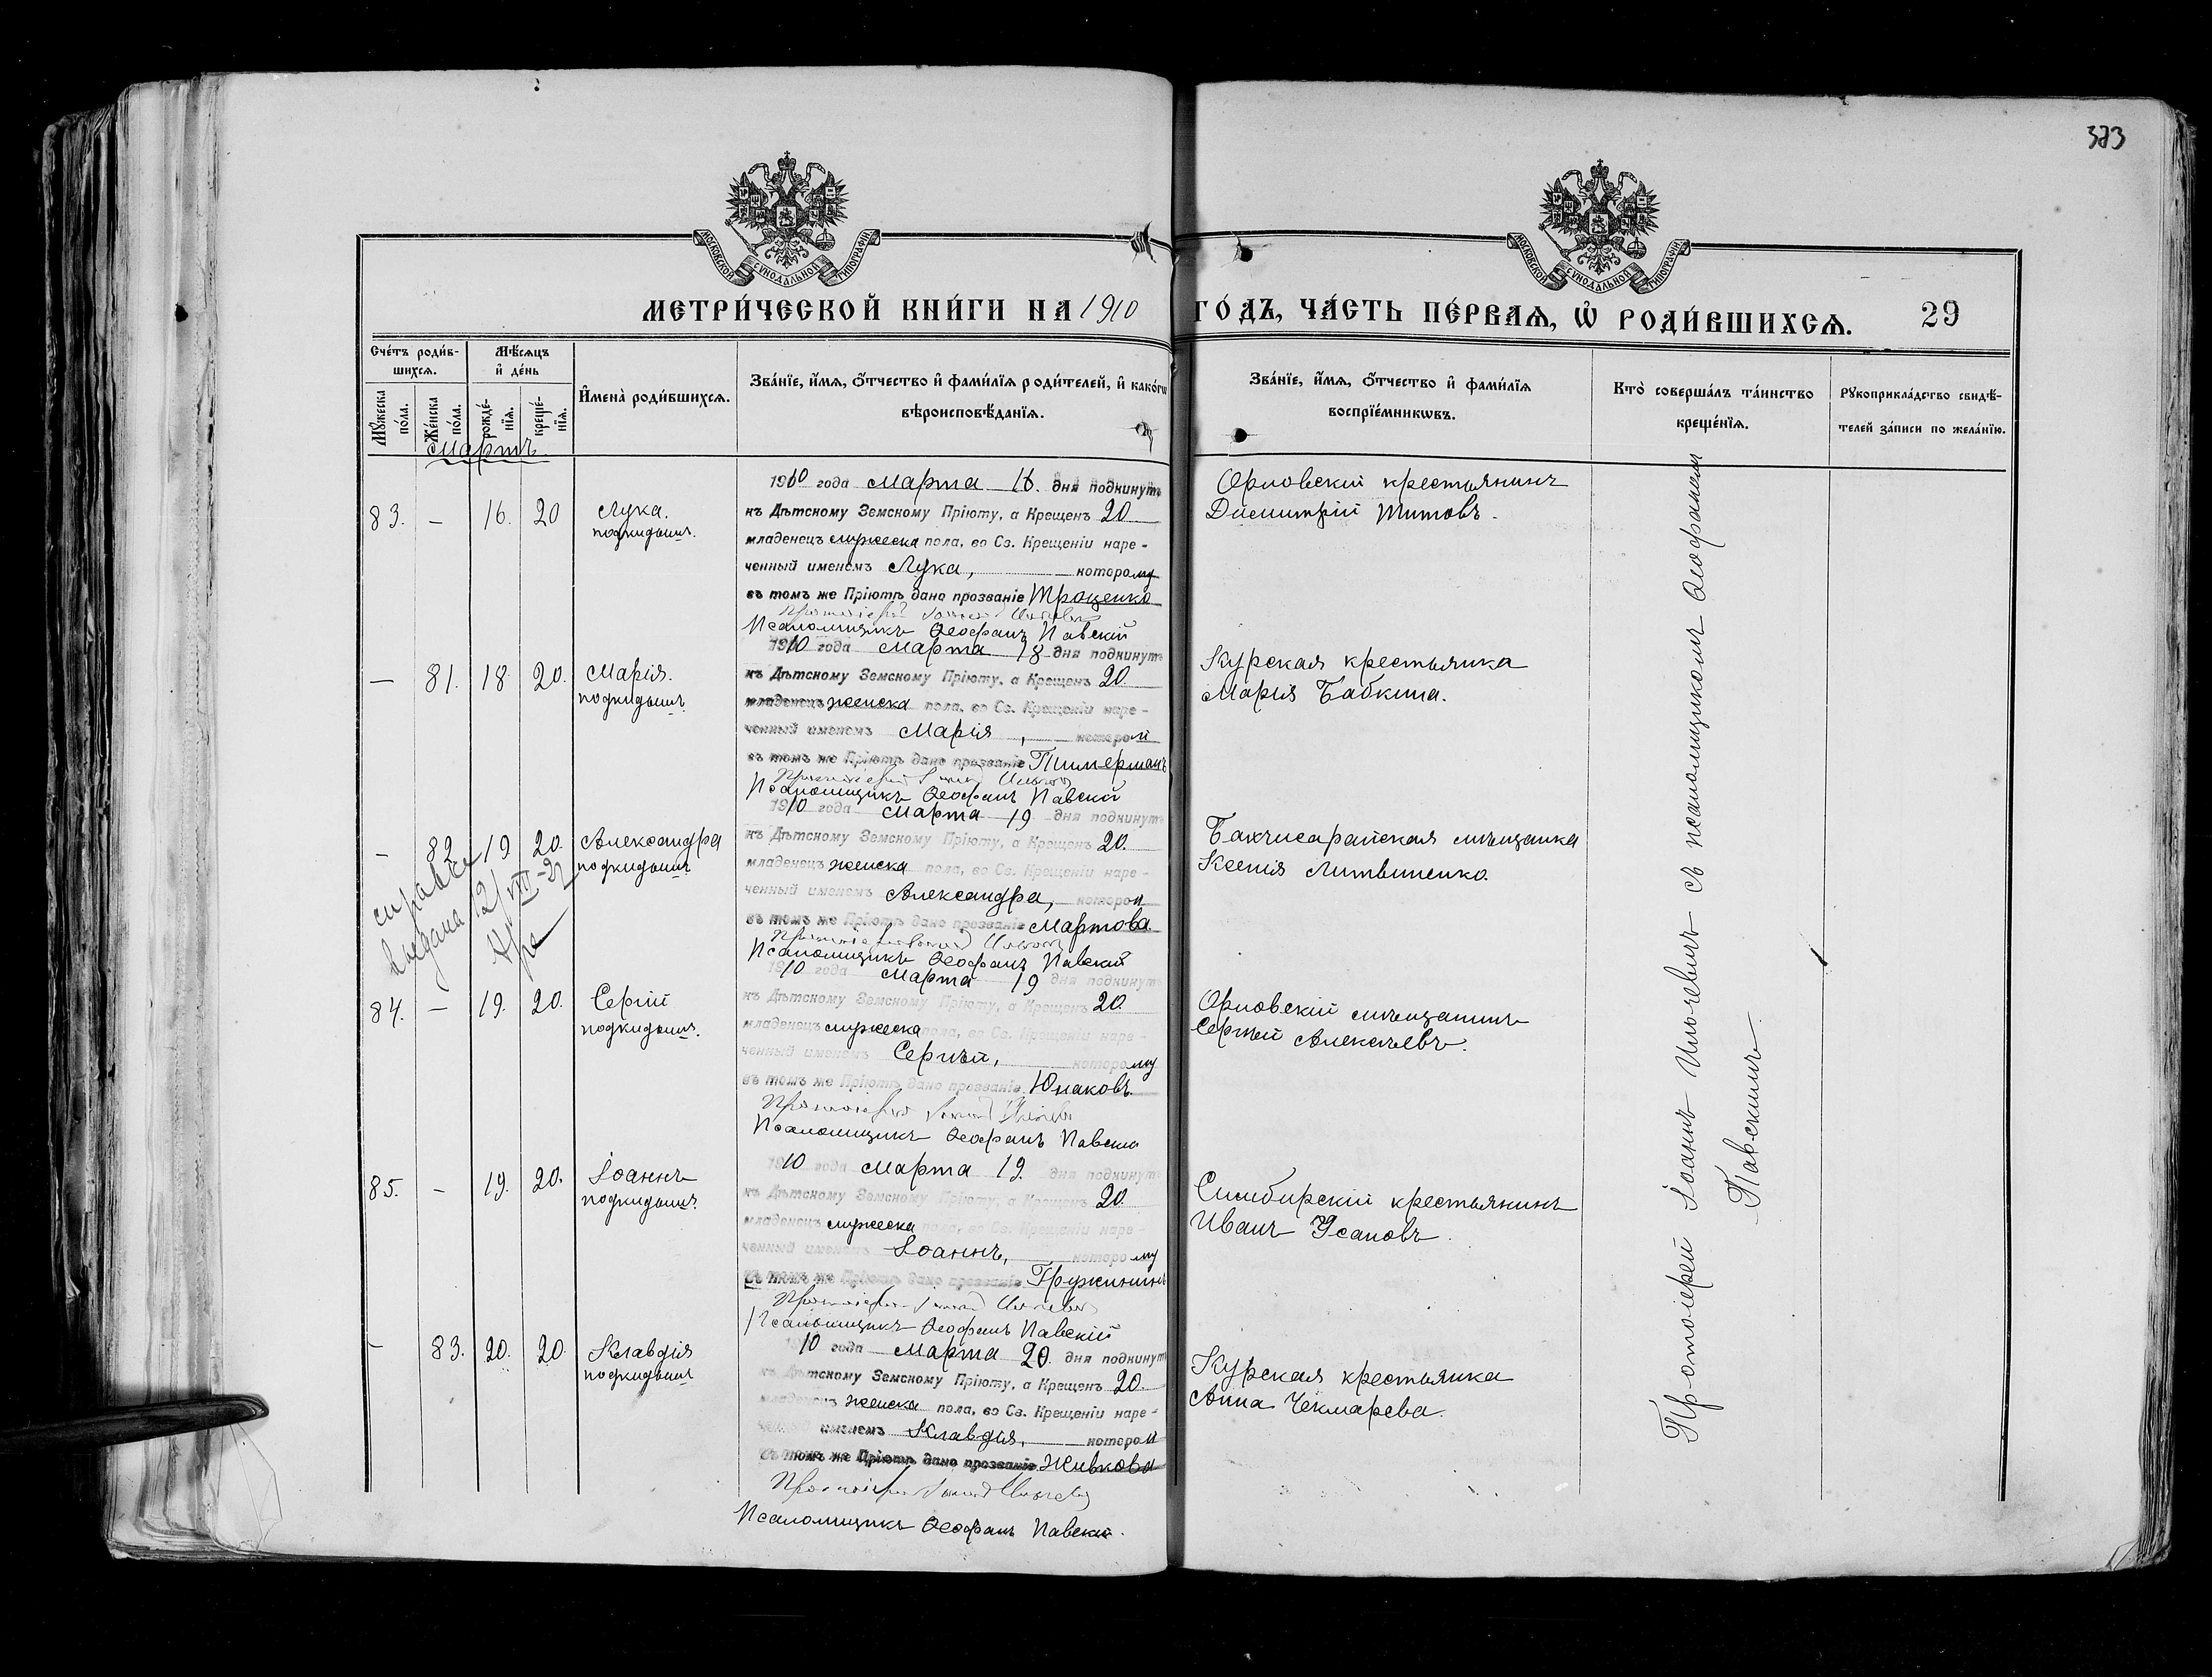 373
МОСКОВСКОЙ СУНОДАЛЬНОЙ ТИПОГРАФІИ
МОСКОВСКОЙ СУНОДАЛЬНОЙ ТИПОГРАФІИ
МЕТРИ́ЧЕСКОЙ КНИ́ГИ НА 1910 ГО́ДЪ, ЧА́СТЬ ПЕ́РВАѦ, Ѡ҆ РОДИ́ВШИХСѦ. 29
Сче́тъ роди́в-
шихсѧ.
Мѣ́сѧцъ
и҆ де́нь
Мꙋ́жеска
по́ла.
Же́нска
по́ла.
рожде́-
нїѧ.
креще́-
нїѧ.
И҆мена̀ роди́вшихсѧ.
Зва́нїе, и҆́мѧ, ѻ҆́тчество и҆ фами́лїѧ роди́телей, и҆ како́гѡ
вѣроисповѣ́данїѧ.
Зва́нїе, и҆́мѧ, ѻ҆́тчество и҆ фами́лїѧ
воспрїе́мникѡвъ.
Кто̀ соверша́лъ та́инство
креще́нїѧ.
Рꙋкоприкла́дство свидѣ́-
телей за́писи по жела́нїю.
Мартъ.
83. — 16. 20 Лука.
подкидышъ.
1910 года Марта 16. дня подкинутъ
къ Дѣтскому Земскому Пріюту, а Крещенъ 20
младенецъ мужеска пола, во Св. Крещеніи наре-
ченный именемъ Лука, которому
въ томъ же Пріютѣ дано прозваніе Троценко
Протоіерей Іоаннъ Ильчевъ
Псаломщикъ Ѳеофанъ Павскій
Орловскій крестьянинъ
Димитрій Титовъ.
— 81. 18 20. Марія.
подкидышъ.
1910 года Марта 18 дня подкинутъ
къ Дѣтскому Земскому Пріюту, а Крещенъ 20.
младенецъ женска пола, во Св. Крещеніи наре-
ченный именемъ Марія, которой
въ томъ же Пріютѣ дано прозваніе
Протоіерей Іоаннъ Ильчевъ
Псаломщикъ Ѳеофанъ Павскій
Курская крестьянка
Марія Бабкина.
— 82 19 20. Александра
подкидышъ
справка
выдана 12/VIII-27
1910 года Марта 19 дня подкинутъ
къ Дѣтскому Земскому Пріюту, а Крещенъ 20.
младенецъ женска пола, во Св. Крещеніи наре-
ченный именемъ Александра, которой
въ томъ же Пріютѣ дано прозваніе Мартова
Протоіерей Іоаннъ Ильчевъ
Псаломщикъ Ѳеофанъ Павскій
Бахчисарайская мѣщанка
Ксенія Литвиненко.
84. — 19. 20. Сергій
подкидышъ.
1910 года Марта 19 дня подкинутъ
къ Дѣтскому Земскому Пріюту, а Крещенъ 20.
младенецъ мужеска пола, во Св. Крещеніи наре-
ченный именемъ Сергѣй, которому
въ томъ же Пріютѣ дано прозваніе Юнаковъ.
Протоіерей Іоаннъ Ильчевъ
Псаломщикъ Ѳеофанъ Павскій
Орловскій мѣщанинъ
Сергѣй Алексѣевъ.
85. — 19. 20. Іоаннъ
подкидышъ.
1910 года Марта 19. дня подкинутъ
къ Дѣтскому Земскому Пріюту, а Крещенъ 20.
младенецъ мужеска пола, во Св. Крещеніи наре-
ченный именемъ Іоаннъ, которому
въ томъ же Пріютѣ дано прозваніе Пружининъ
Протоіерей Іоаннъ Ильчевъ
Псаломщикъ Ѳеофанъ Павскій
Симбирскій крестьянинъ
Иванъ Усановъ.
— 83. 20. 20 Клавдія
подкидышъ
1910 года Марта 20. дня подкинутъ
къ Дѣтскому Земскому Пріюту, а Крещенъ 20.
младенецъ женска пола, во Св. Крещеніи наре-
ченный именемъ Клавдія, которой
въ томъ же Пріютѣ дано прозваніе Живкова
Протоіерей Іоаннъ Ильчевъ
Псаломщикъ Ѳеофанъ Павскій.
Курская крестьянка
Анна Чекмарева.
Протоіерей Іоаннъ Ильчевымъ съ псаломщикомъ Ѳеофаномъ
Павскимъ